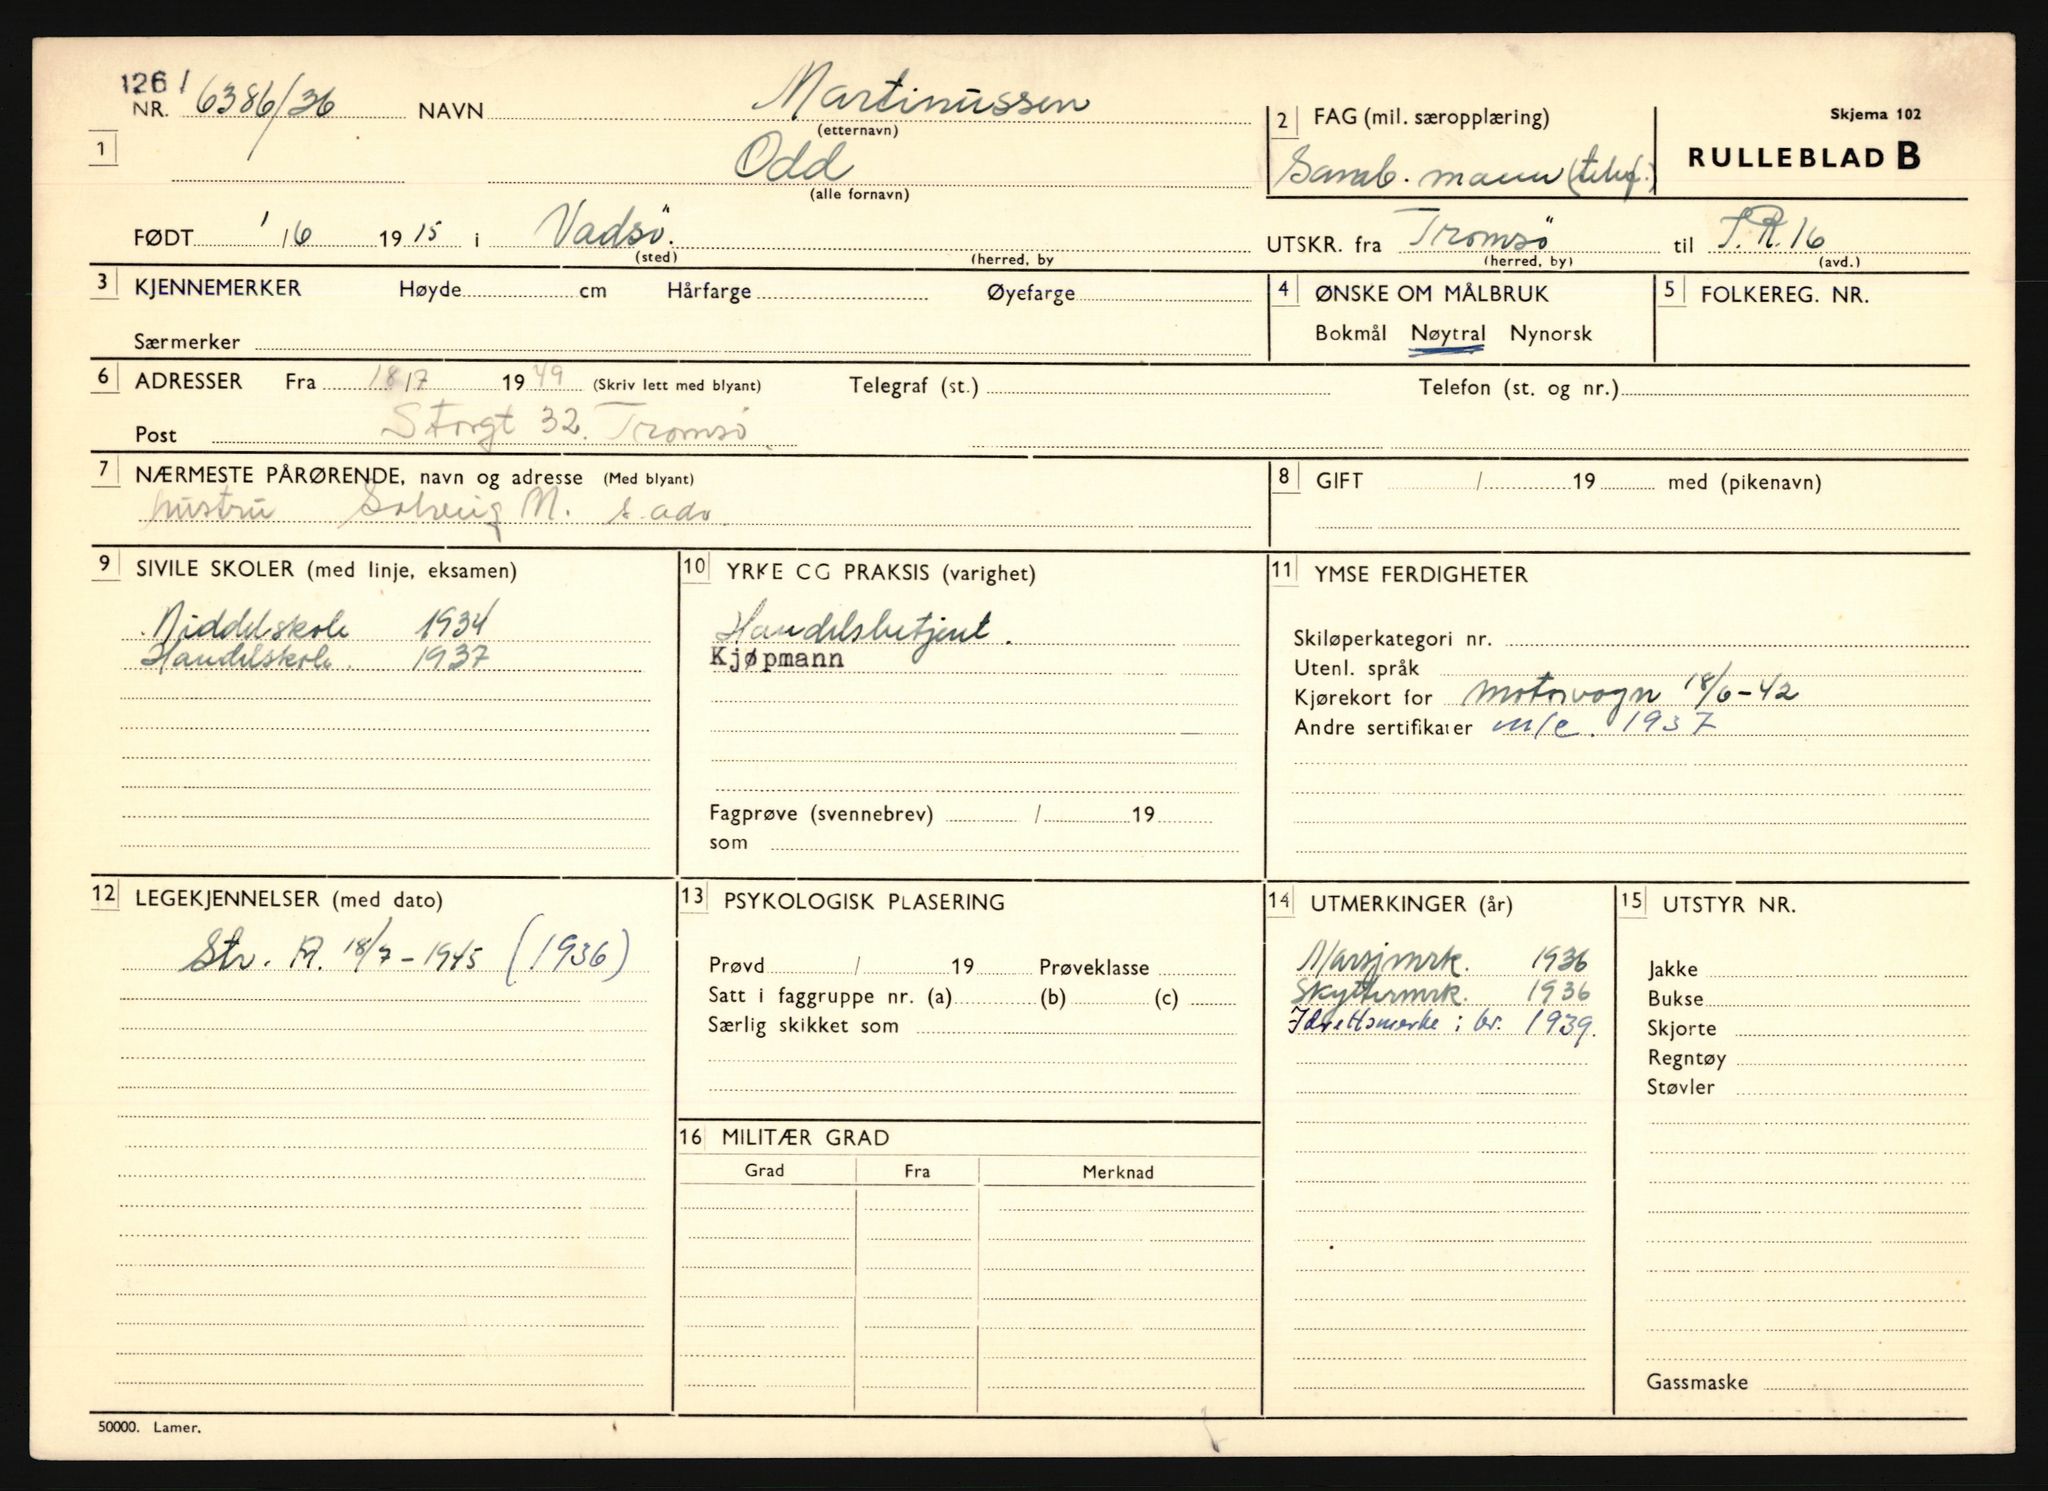 126/
NR. 6386/36 NAVN Martinussen
(etternavn)
2 FAG (mil. særopplæring)
Skjema 102
RULLEBLAD B
1
Odd
(alle fornavn)
Samb. mann (telef.)
FØDT 1/6 1915 i Vadsö.
(sted) (herred, by
UTSKR. fra Tromsö til I.R. 16
(herred, by) (avd.)
3 KJENNEMERKER Høyde cm Hårfarge Øyefarge
Særmerker
4 ØNSKE OM MÅLBRUK
Bokmål Nøytral Nynorsk
5 FOLKEREG. NR.
6 ADRESSER Fra 18/7 1949 (Skriv lett med blyant) Telegraf (st.) Telefon (st. og nr.)
Post Storgt 32. Tromsö
7 NÆRMESTE PÅRØRENDE, navn og adresse (Med blyant)
hustru Solveig M. s. adr.
8 GIFT / 19 med (pikenavn)
9 SIVILE SKOLER (med linje, eksamen)
Middelskole 1934
Handelskole. 1937
10 YRKE CG PRAKSIS (varighet)
Handelsbetjent.
Kjøpmann
Fagprøve (svennebrev) / 19
som
11 YMSE FERDIGHETER
Skiløperkategori nr.
Utenl. språk
Kjørekort for motorvogn 18/6-42
Andre sertifikater m/c. 1937
12 LEGEKJENNELSER (med dato)
Str. A. 18/7-1945 (1936)
13 PSYKOLOGISK PLASERING
Prøvd / 19 Prøveklasse
Satt i faggruppe nr. (a) (b) (c)
Særlig skikket som
14 UTMERKINGER (år)
Marsjmrk. 1936
Skyttermrk. 1936
Idrettsmerke i br. 1939.
15 UTSTYR NR.
Jakke
Bukse
Skjorte
Regntøy
Støvler
Gassmaske
16 MILITÆR GRAD
Grad Fra Merknad
50000. Lamer.